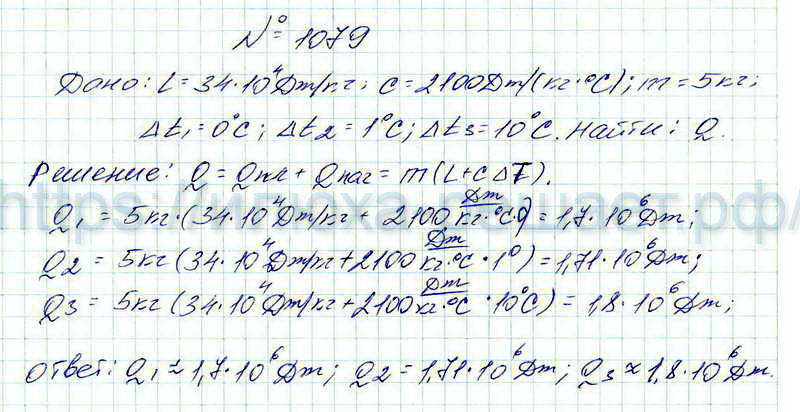 № 1079
Дано: L = 34·10⁴ Дж/кг; c = 2100 Дж/(кг·°C); m = 5 кг;
Δt₁ = 0°C; Δt₂ = 1°C; Δt₃ = 10°C. Найти: Q.
Решение: Q = Qпл + Qнаг = m(L + cΔT).
Q₁ = 5кг·(34·10⁴ Дж/кг + 2100 Дж/кг·°C·0) = 1,7·10⁶ Дж;
Q₂ = 5кг(34·10⁴ Дж/кг + 2100 Дж/кг·°C · 1°) = 1,71·10⁶ Дж;
Q₃ = 5кг(34·10⁴ Дж/кг + 2100 Дж/кг·°C · 10°C) = 1,8·10⁶ Дж;
Ответ: Q₁ ≈ 1,7·10⁶ Дж; Q₂ = 1,71·10⁶ Дж; Q₃ ≈ 1,8·10⁶ Дж.